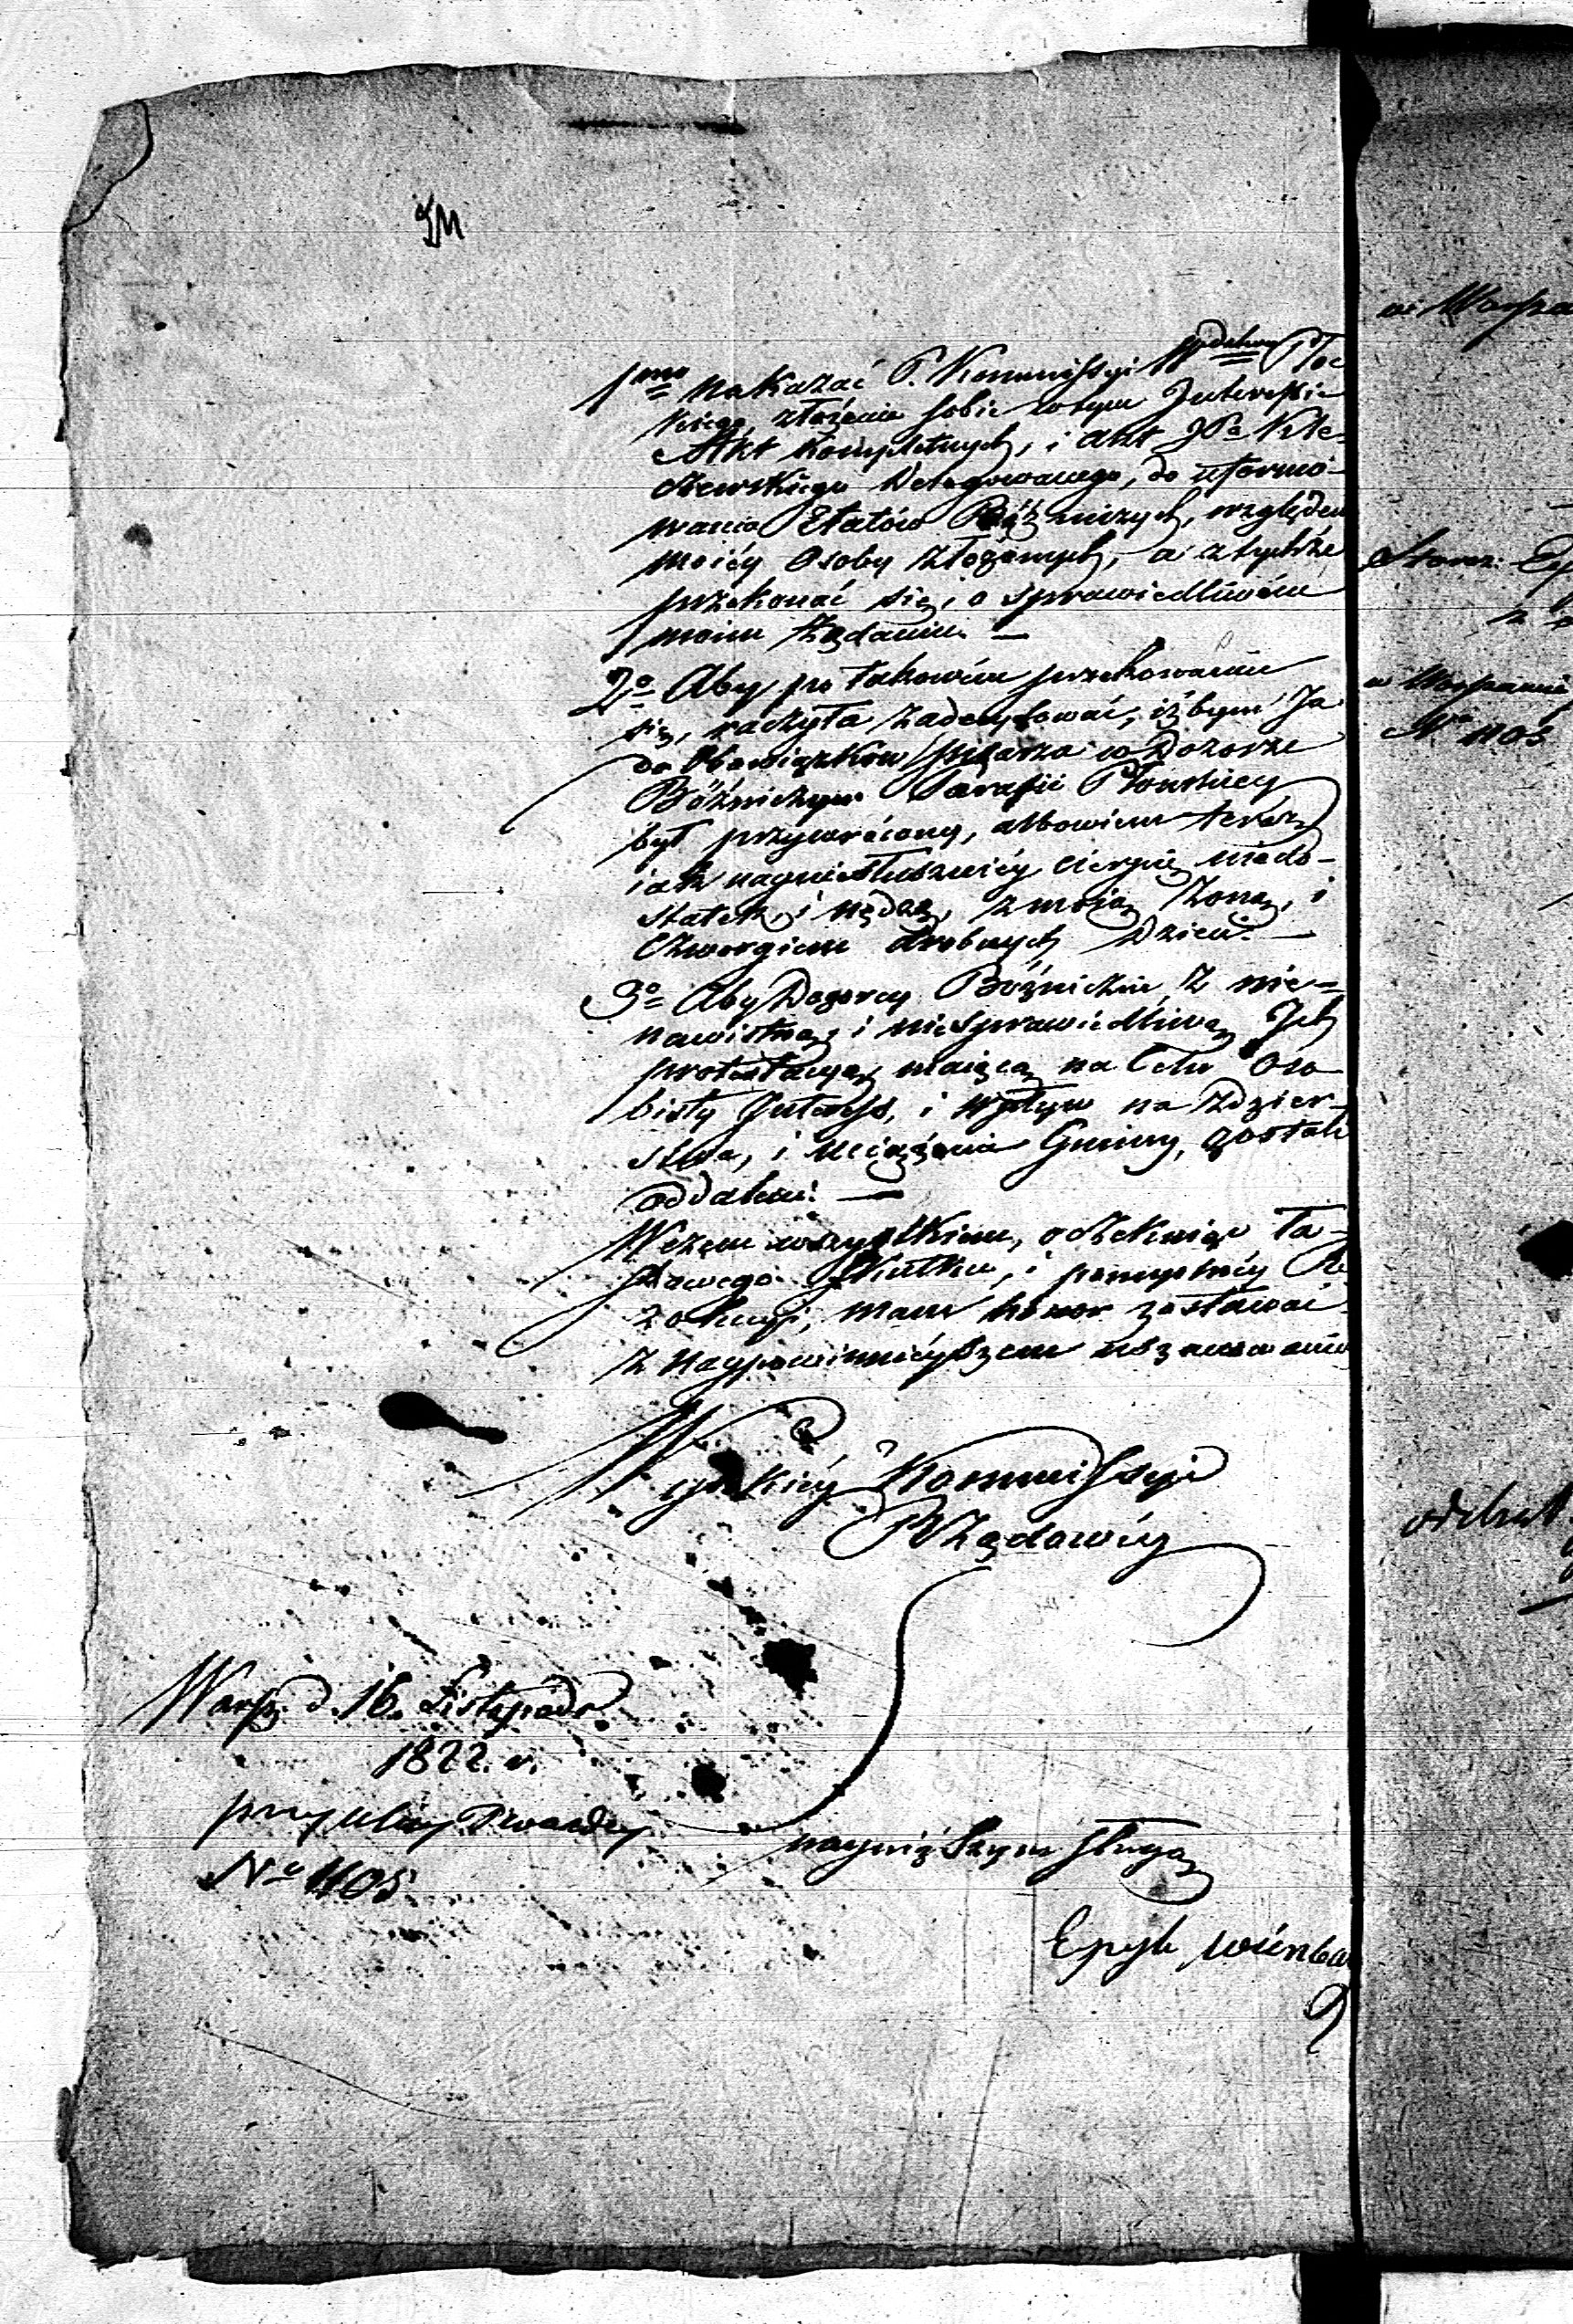 1mo nakazać P. Kommissyi Wdztwa Płoc
kiego, złożenie sobie wtym Interessie
Akt kompletnych, i akt JPa Kle-
czewskiego Delegowanego, do uformo-
wania Etatów Bóżniczych, względem
moiéy Osoby złożonych, a z tychże
przekonać się, o sprawiedliwém
moim żądaniu. —
2o Aby po takowém przekonaniu
się, raczyła zadecydować, iżbym Ja
do Obowiązków pisarza w Dozorze
Bóźniczym Parafii Płońskiey
był przywrócony, albowiem teraz
iak nayniesłuszniéy cierpię niedo-
statek, i nędzę, z moią żoną, i
czworgiem drobnych dzieci. —
3o Aby Dozorcy Bóźniczni, z nie-
nawistną, i niesprawiedliwą Ich
protestacyą, maiącą na celu Oso
bisty Interess, i wpływ na zdzier-
stwa, i uciążenie Gminy, zostali
oddaleni. —
W czem wszystkiem, oczekuiąc ła-
skawego skutku, i pomyślnéy Re
zolucyi, mam honor zostawać
z naypowinniéyszem uszanowaniem
Wysokiéy Kommissyi
Rządowéy
Warsz. d. 16. Listopada
1822. r.
przy ulicy Twardey
No 1105
nayniższym sługą
w Warsza
w Warszawie
No 1105